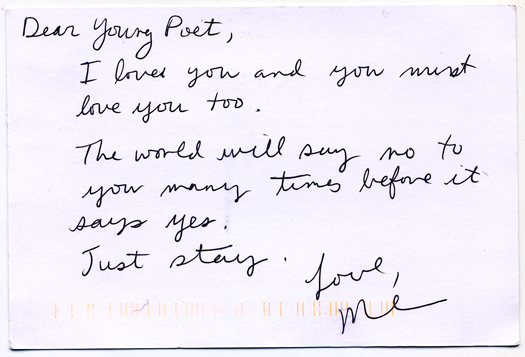 Dear Young Poet,
I loves you and you must
love you too.
The world will say no to
you many times before it
says yes.
Just stay.
Love,
Me